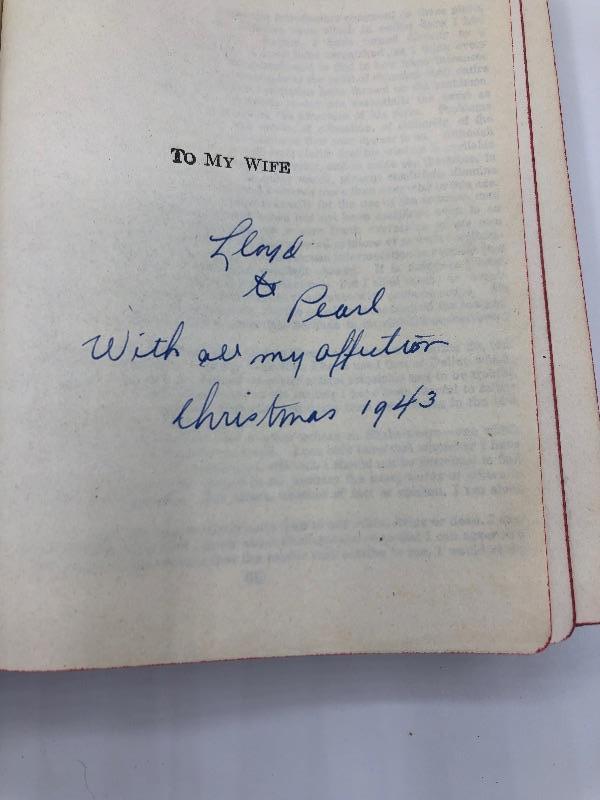 TO MY WIFE
Lloyd
to
Pearl
With all my affection
Christmas 1943